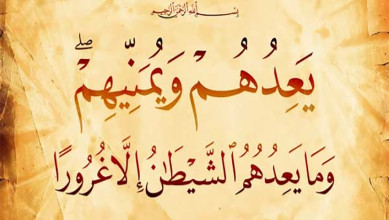 بسم الله الرحمن الرحيم
يَعِدُهُمْ وَيُمَنِّيهِمْ ۖ
وَمَا يَعِدُهُمُ ٱلشَّيْطَٰنُ إِلَّا غُرُورًا